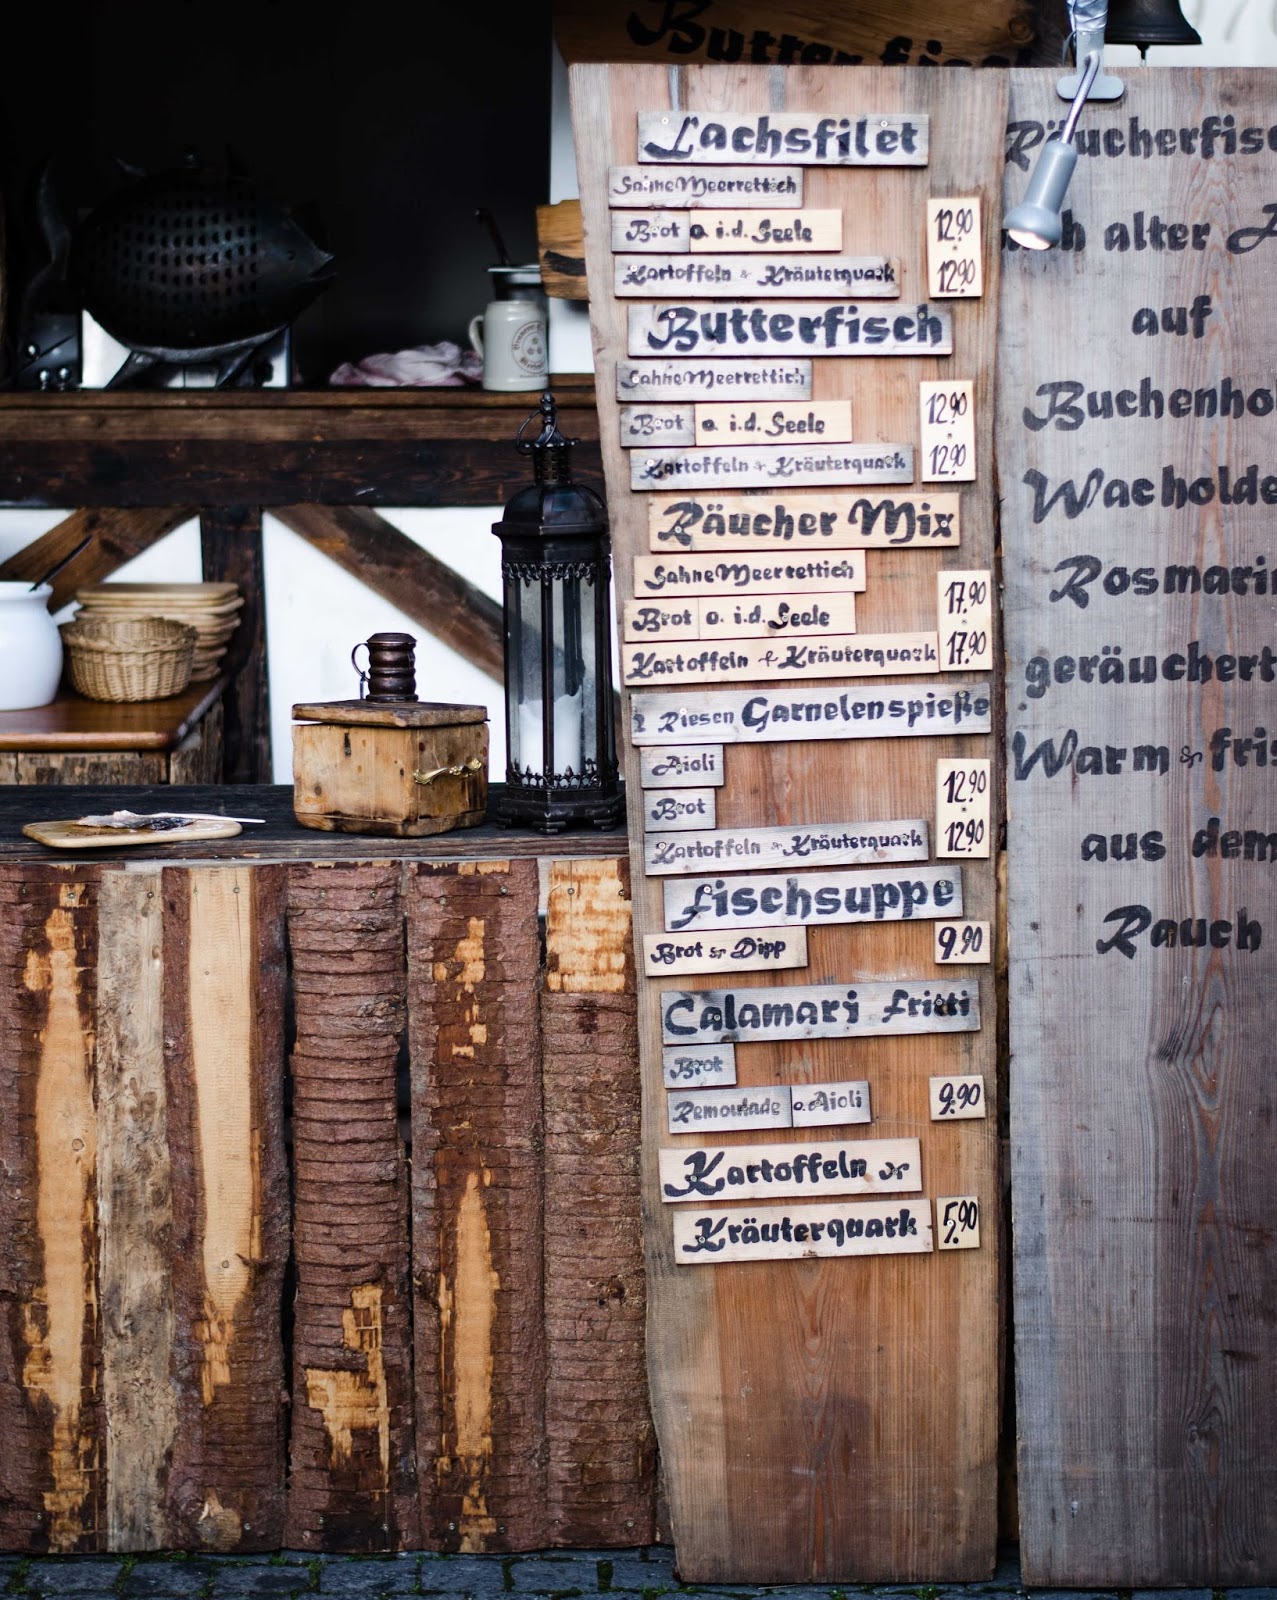 Lachsfilet
Sahne Meerrettich
Brot o. i.d. Seele 12.90
Kartoffeln & Kräuterquark 12.90
Butterfisch
Sahne Meerrettich
Brot o. i.d. Seele 12.90
Kartoffeln & Kräuterquark 12.90
Räucher Mix
Sahne Meerrettich
Brot o. i.d. Seele 17.90
Kartoffeln & Kräuterquark 17.90
2 Riesen Garnelenspieße
Aioli
Brot 12.90
Kartoffeln & Kräuterquark 12.90
Fischsuppe
Brot & Dipp 9.90
Calamari fritti
Brot
Remoulade o. Aioli 9.90
Kartoffeln &
Kräuterquark 5.90
Räucherfisc
alter
auf
Buchenho
Wacholde
Rosmarin
geräuchert
Warm & fris
aus dem
Rauch